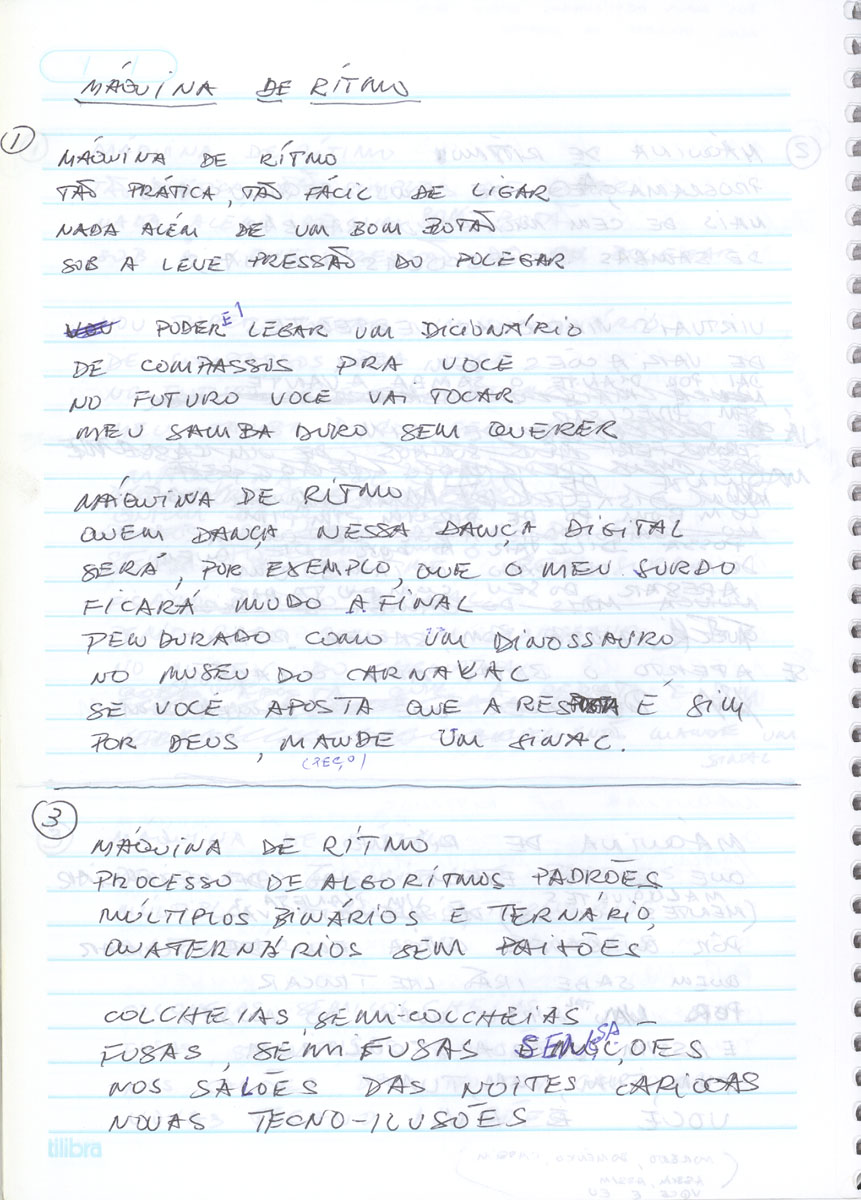 MÁQUINA DE RÍTMO
1
MÁQUINA DE RÍTMO
TÃO PRÁTICA, TÃO FÁCIL DE LIGAR
NADA ALÉM DE UM BOM BOTÃO
SOB A LEVE PRESSÃO DO POLEGAR
PODEREI LEGAR UM DICIONÁRIO
DE COMPASSOS PRA VOCÊ
NO FUTURO VOCÊ VAI TOCAR
MEU SAMBA DURO SEM QUERER
MÁQUINA DE RÍTMO
QUEM DANÇA NESSA DANÇA DIGITAL
SERÁ, POR EXEMPLO, QUE O MEU SURDO
FICARÁ MUDO AFINAL
PENDURADO COMO UM DINOSSAURO
NO MUSEU DO CARNAVAL
SE VOCÊ APOSTA QUE A RESPOSTA É SIM
POR DEUS, MANDE UM SINAL.
(PEÇO)
3
MÁQUINA DE RÍTMO
PROCESSO DE ALGORÍTMOS PADRÕES
MÚLTIPLOS BINÁRIOS E TERNÁRIO,
QUATERNÁRIOS SEM PAIXÕES
COLCHEIAS, SEMI-COLCHEIAS
FUSAS, SEMIFUSAS SENSAÇÕES
NOS SALÕES DAS NOITES CARIOCAS
NOVAS TECNO-ILUSÕES
tilibra